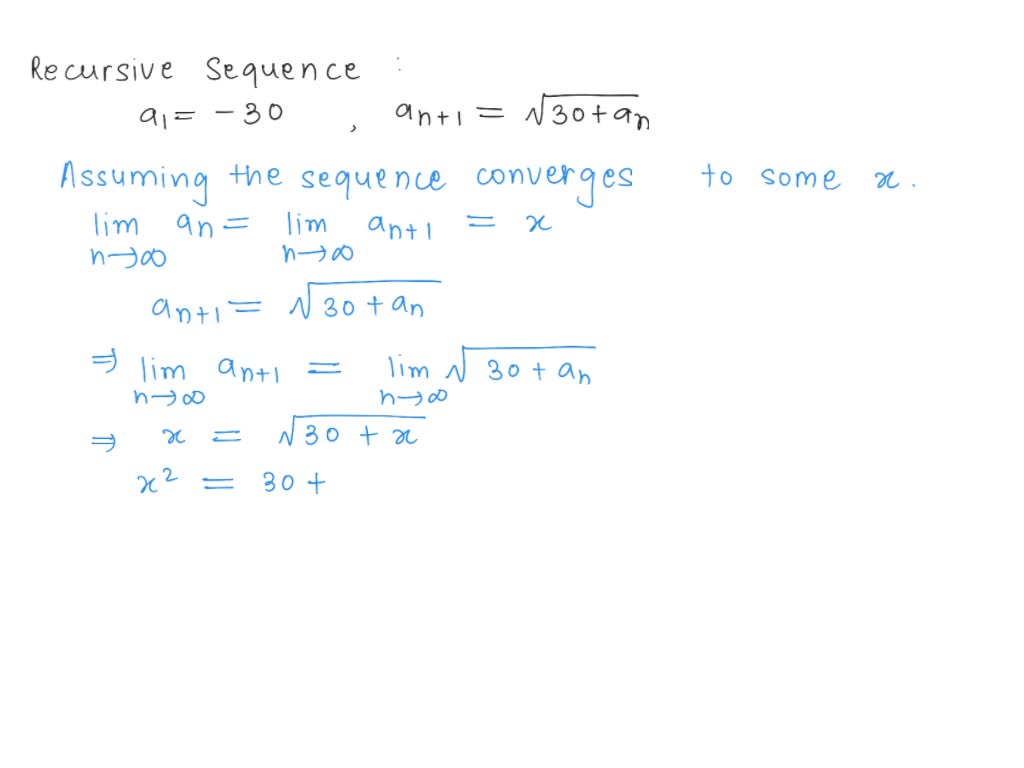 Recursive Sequence :
a₁ = -30 , aₙ₊₁ = √(30+aₙ)
Assuming the sequence converges to some x.
lim aₙ = lim aₙ₊₁ = x
n→∞ n→∞
aₙ₊₁ = √(30 + aₙ)
⇒ lim aₙ₊₁ = lim √(30 + aₙ)
n→∞ n→∞
⇒ x = √(30 + x)
x² = 30 +